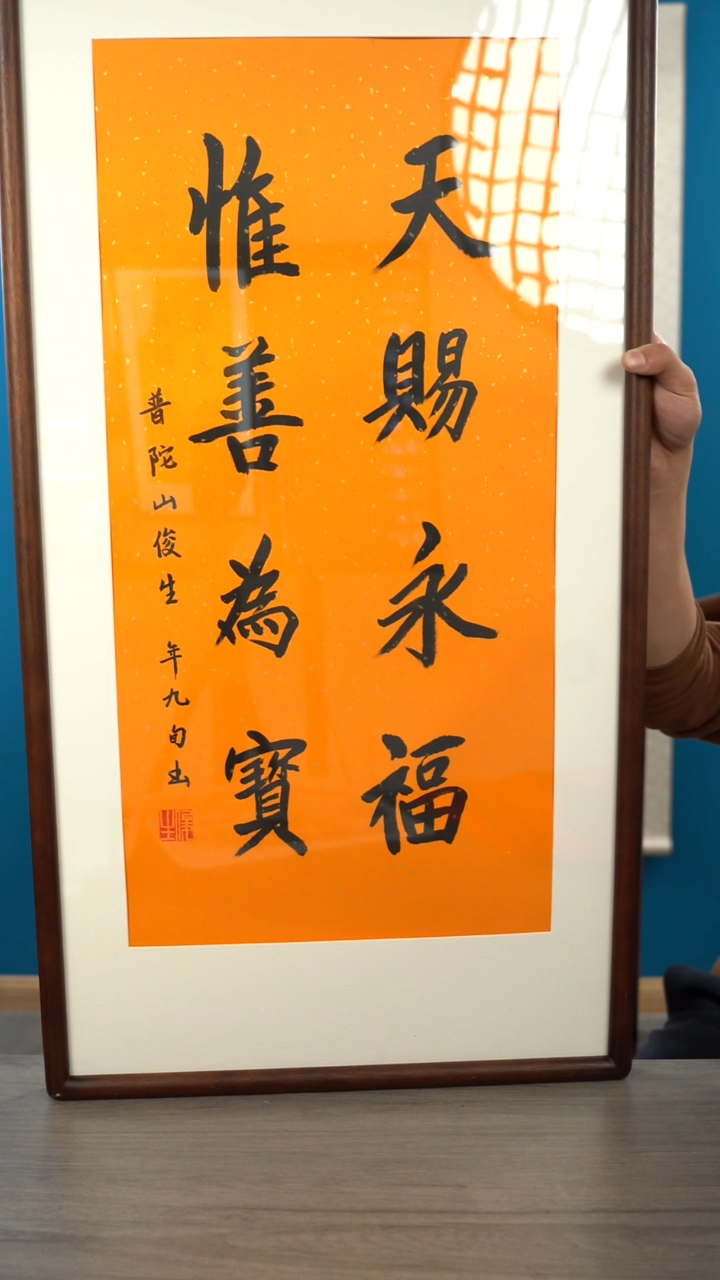 天賜永福
惟善為寶
普陀山俊生 年九旬書